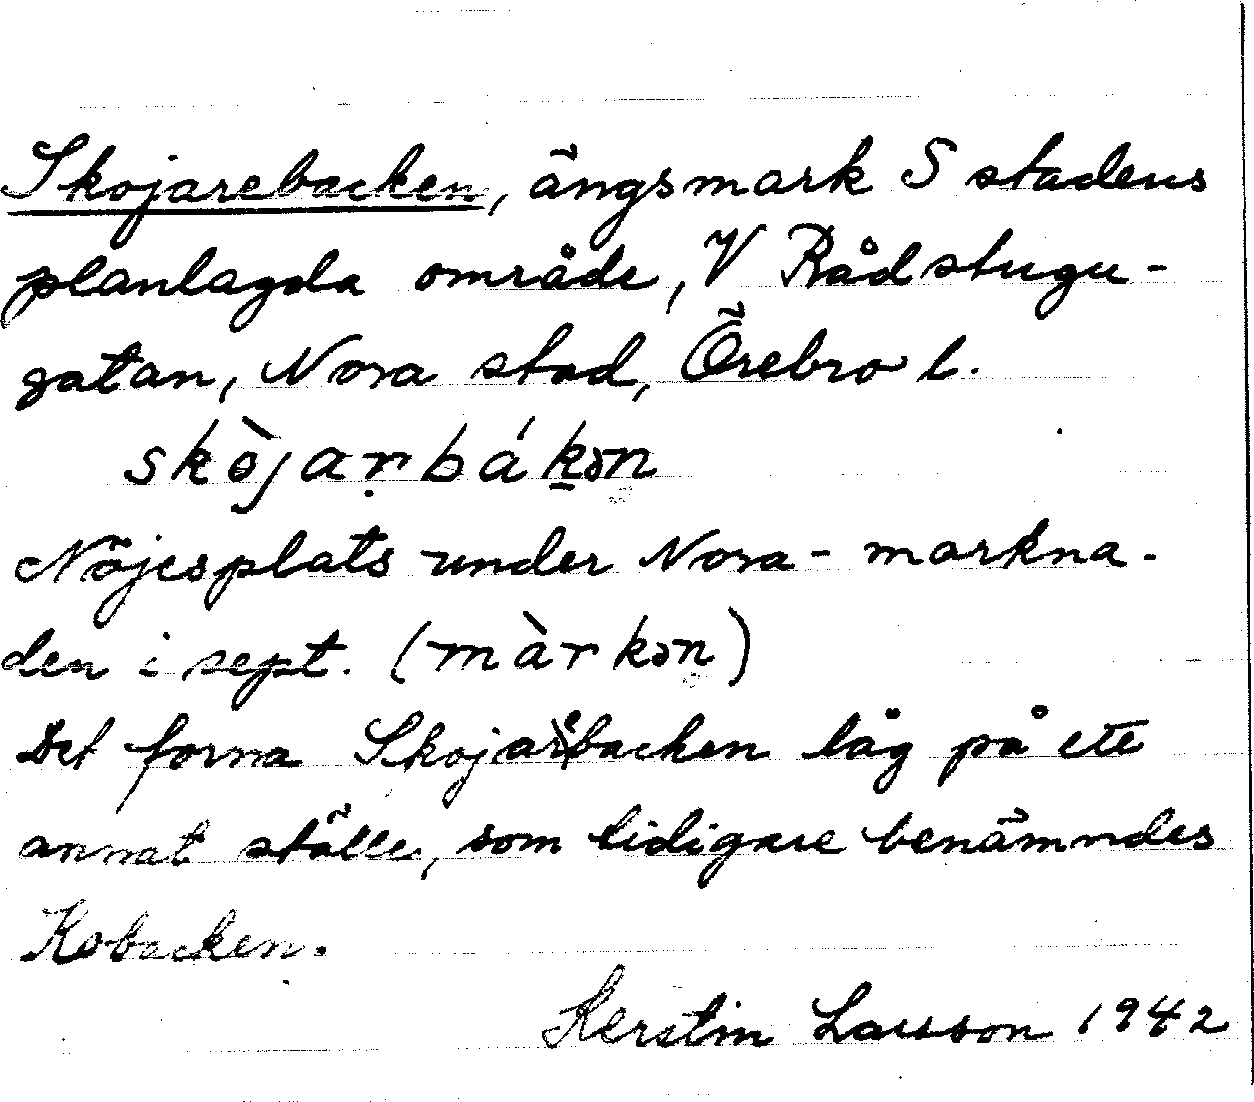 Skojarebacken, ängsmark S stadens
planlagda område, V Rådstugu-
gatan, Nora stad, Örebro l.
skòjaṛbákən
Nöjesplats under Nora-markna-
den i sept. (màrkən)
Det forna Skojarebacken låg på ett
annat ställe, som tidigare benämndes
Kobacken.
Kerstin Larsson 1942